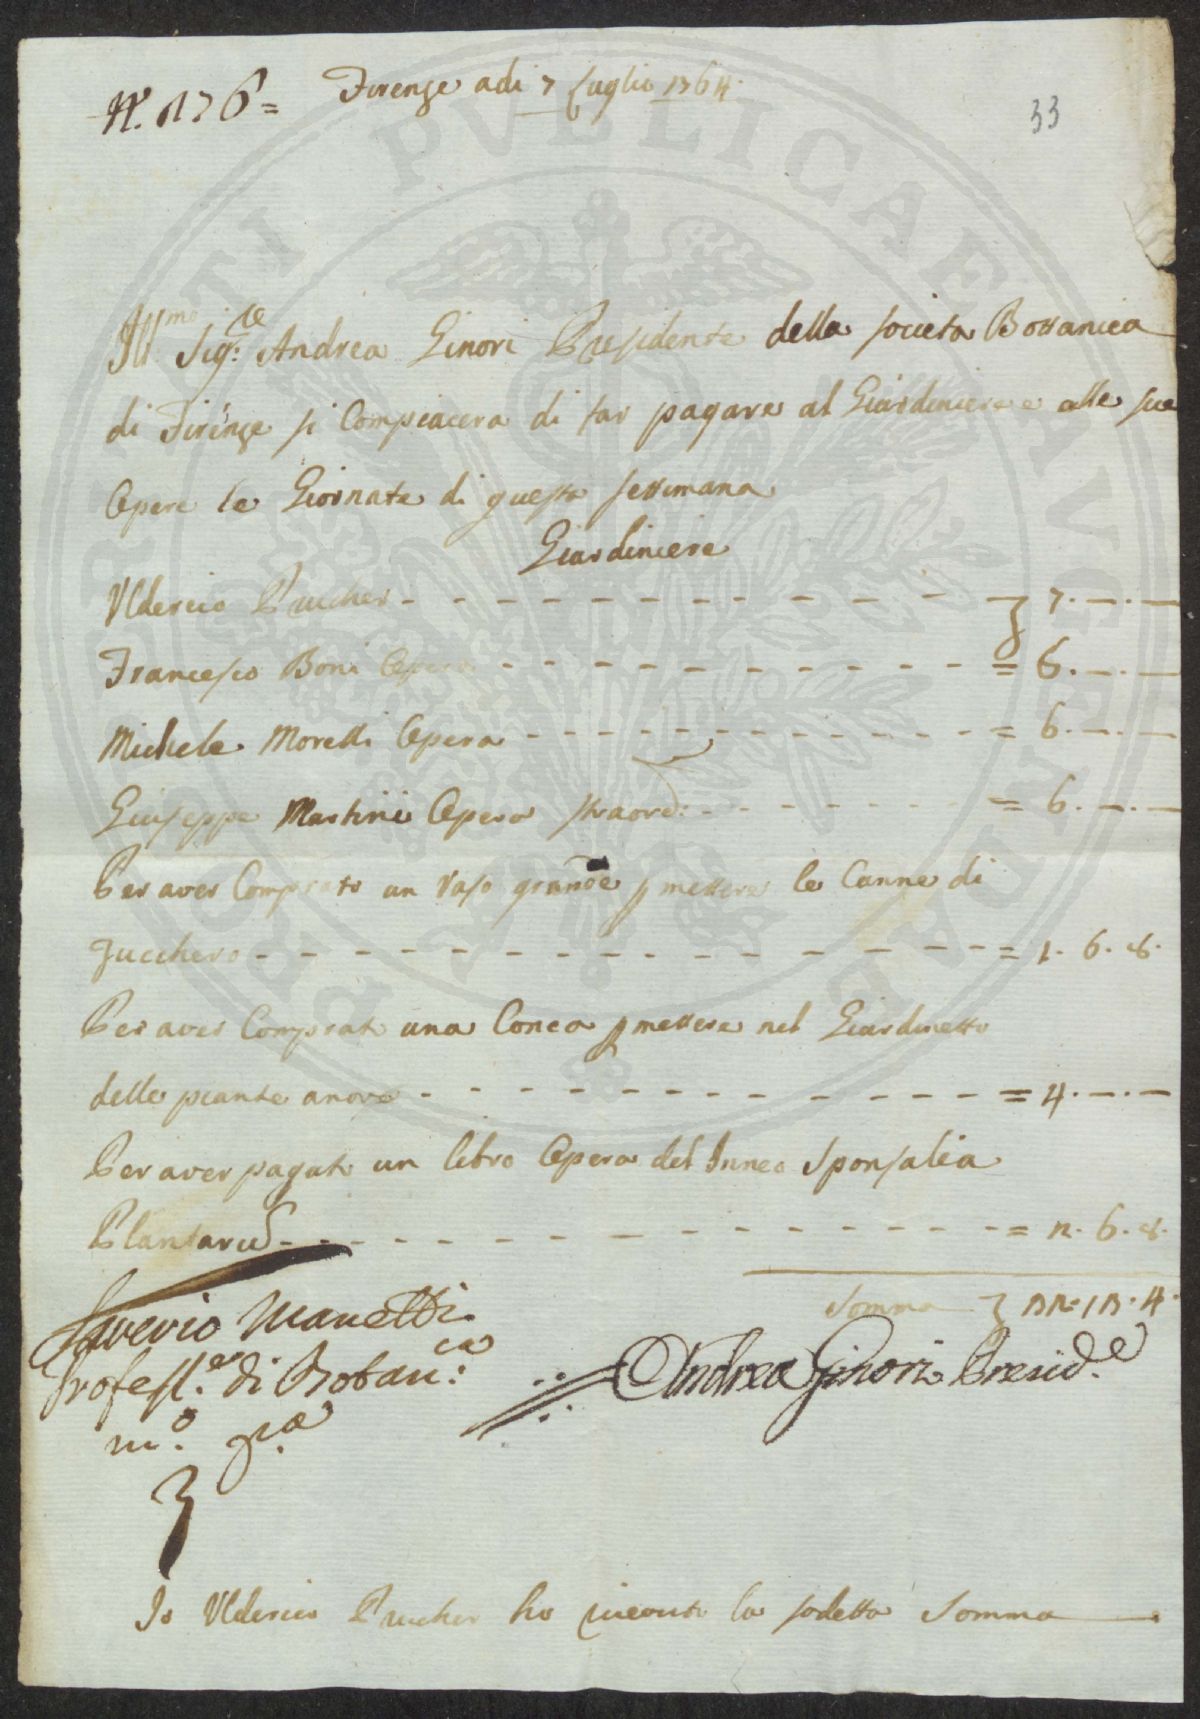 N.° 176=
Firenze adi 7 Luglio 1764.
33
Ill.mo Sig.re Andrea Ginori Presidente della società Bottanica
di Firenze si Compiacera di far pagare al Giardiniere e alle sue
Opere le Giornate di questa settimana
Giardiniere
Ulderico Prucher - - - - - - - - - 7. —. —
Francesco Boni Opera - - - - - - - - - = 6. —. —
Michele Morelli Opera - - - - - - - - - = 6. —. —
Giuseppe Martini Opera straord: - - - - - - = 6. —. —
Per aver Comprato un Vaso grande p mettere le Canne di
Zucchero - - - - - - - - - - - - = 1. 6. 8.
Per aver Comprato una Conca p mettere nel Giardinetto
delle piante anove - - - - - - - - - - = 4. —. —
Per aver pagato un libro Opera del Inneo Sponsalia
Plantarum - - - - - - - - - - - = 2. 6. 8.
Somma
Saverio Manetti
Profess.er di Botan.ca
m.o p.a
Andrea Ginori Presid.e
Io Ulderico Prucher ho riceuto la sodetta Somma
PROSPERITATI PVBLICAE AVGENDAE